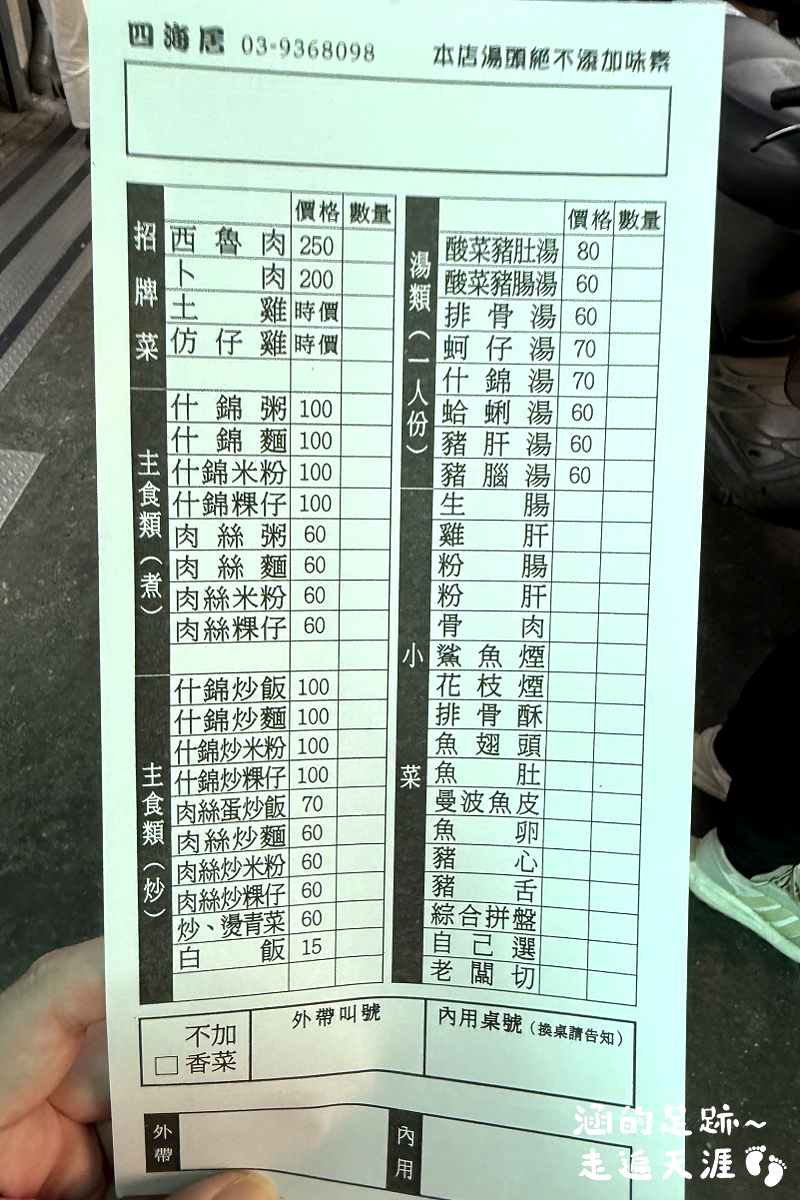 四海居 03-9368098 本店湯頭絕不添加味素
招牌菜
價格 數量
西魯肉 250
卜肉 200
土雞 時價
仿仔雞 時價
主食類（煮）
什錦粥 100
什錦麵 100
什錦米粉 100
什錦粿仔 100
肉絲粥 60
肉絲麵 60
肉絲米粉 60
肉絲粿仔 60
主食類（炒）
什錦炒飯 100
什錦炒麵 100
什錦炒米粉 100
什錦炒粿仔 100
肉絲蛋炒飯 70
肉絲炒麵 60
肉絲炒米粉 60
肉絲炒粿仔 60
炒、燙青菜 60
白飯 15
湯類（一人份）
價格 數量
酸菜豬肚湯 80
酸菜豬腸湯 60
排骨湯 60
蚵仔湯 70
什錦湯 70
蛤蜊湯 60
豬肝湯 60
豬腦湯 60
小菜
生腸
雞肝
粉腸
粉肝
骨肉
鯊魚煙
花枝煙
排骨酥
魚翅頭
魚肚
曼波魚皮
魚卵
豬心
豬舌
綜合拼盤
自己選
老闆切
不加
□ 香菜
外帶叫號
內用桌號（換桌請告知）
外帶
內用
涵的足跡~
走遍天涯